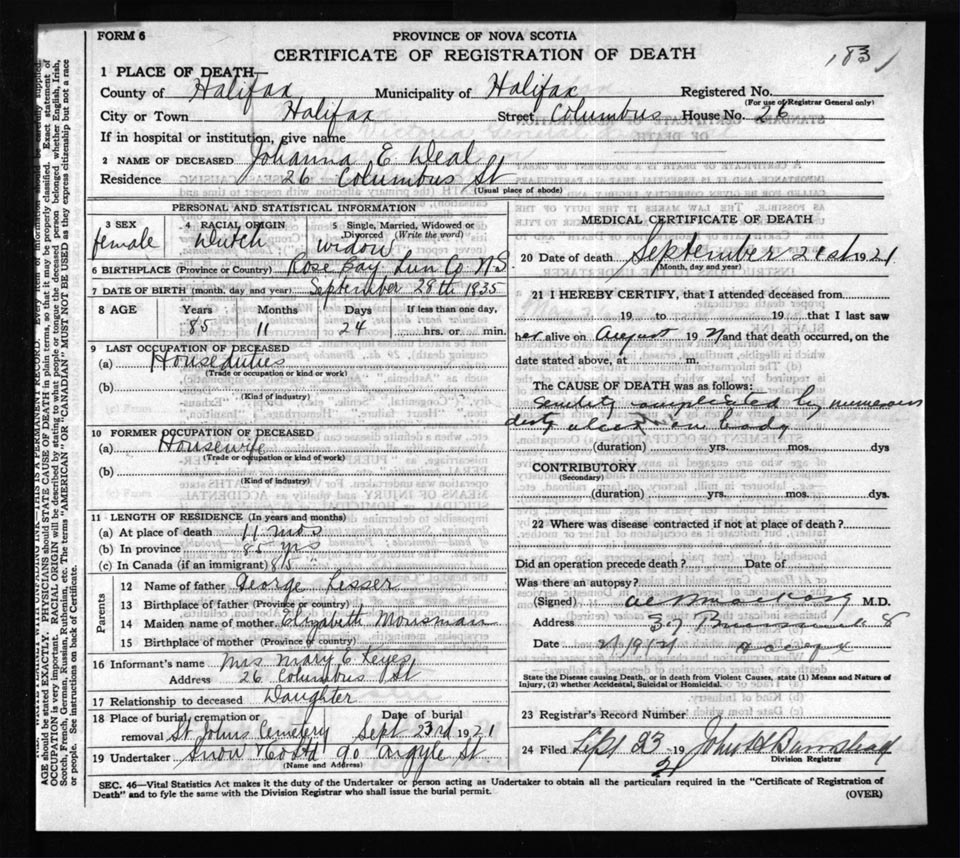 FORM 6
PROVINCE OF NOVA SCOTIA
CERTIFICATE OF REGISTRATION OF DEATH
183
1 PLACE OF DEATH—
County of Halifax Municipality of Halifax Registered No.
(For use of Registrar General only)
City or Town Halifax Street Columbus House No. 26
If in hospital or institution, give name
2 NAME OF DECEASED Johanna E. Deal
Residence 26 Columbus St
(Usual place of abode)
PERSONAL AND STATISTICAL INFORMATION
3 SEX 4 RACIAL ORIGIN 5 Single, Married, Widowed or Divorced (Write the word)
female Dutch widow
6 BIRTHPLACE (Province or Country) Rose Bay Lun Co NS
7 DATE OF BIRTH (month, day and year) September 28th 1835
8 AGE Years Months Days If less than one day,
85 11 24 hrs. or min.
9 LAST OCCUPATION OF DECEASED
(a) Houseduties
(Trade or occupation or kind or work)
(b)
(Kind of industry)
10 FORMER OCCUPATION OF DECEASED
(a) Housewife
(Trade or occupation or kind of work)
(b)
(Kind of industry)
11 LENGTH OF RESIDENCE (In years and months)
(a) At place of death 11 mos
(b) In province 85 yrs
(c) In Canada (if an immigrant) 85
Parents
12 Name of father George Lesser
13 Birthplace of father (Province or country)
14 Maiden name of mother Elizabeth Mousman
15 Birthplace of mother (Province or country)
16 Informant's name Mrs Mary E Keyes
Address 26 Columbus St
17 Relationship to deceased Daughter
18 Place of burial, cremation or removal Date of burial
St Johns Cemetery Sept 23rd 1921
19 Undertaker Snow & Co Ltd 90 Argyle St
(Name and Address)
MEDICAL CERTIFICATE OF DEATH
20 Date of death September 21st 1921
(Month, day and year)
21 I HEREBY CERTIFY, that I attended deceased from
19 to 19 that I last saw
her alive on August 1921 and that death occurred, on the
date stated above, at m.
The CAUSE OF DEATH was as follows:
Senility complicated by numerous
ulcers on body
(duration) yrs. mos. dys
CONTRIBUTORY
(Secondary)
(duration) yrs. mos. dys.
22 Where was disease contracted if not at place of death?
Did an operation precede death? Date of
Was there an autopsy?
(Signed) M.D.
Address 37
Date 21/9/21
State the Disease causing Death, or in death from Violent Causes, state (1) Means and Nature of
Injury, (2) whether Accidental, Suicidal or Homicidal.
23 Registrar's Record Number
24 Filed Sept 23 19 21 John
Division Registrar
SEC. 46—Vital Statistics Act makes it the duty of the Undertaker or person acting as Undertaker to obtain all the particulars required in the "Certificate of Registration of
Death" and to fyle the same with the Division Registrar who shall issue the burial permit.
(OVER)
AGE should be stated EXACTLY. PHYSICIANS should STATE CAUSE OF DEATH in plain terms, so that it may be properly classified. Exact statement of
OCCUPATION is very important. RACIAL ORIGIN will be described by stating to what people or tongue the deceased person belonged whether English, Irish,
Scotch, French, German, Russian, Ruthenian, etc. The terms "AMERICAN" OR "CANADIAN" MUST NOT BE USED as they express citizenship but not a race
or people. See instructions on back of Certificate.